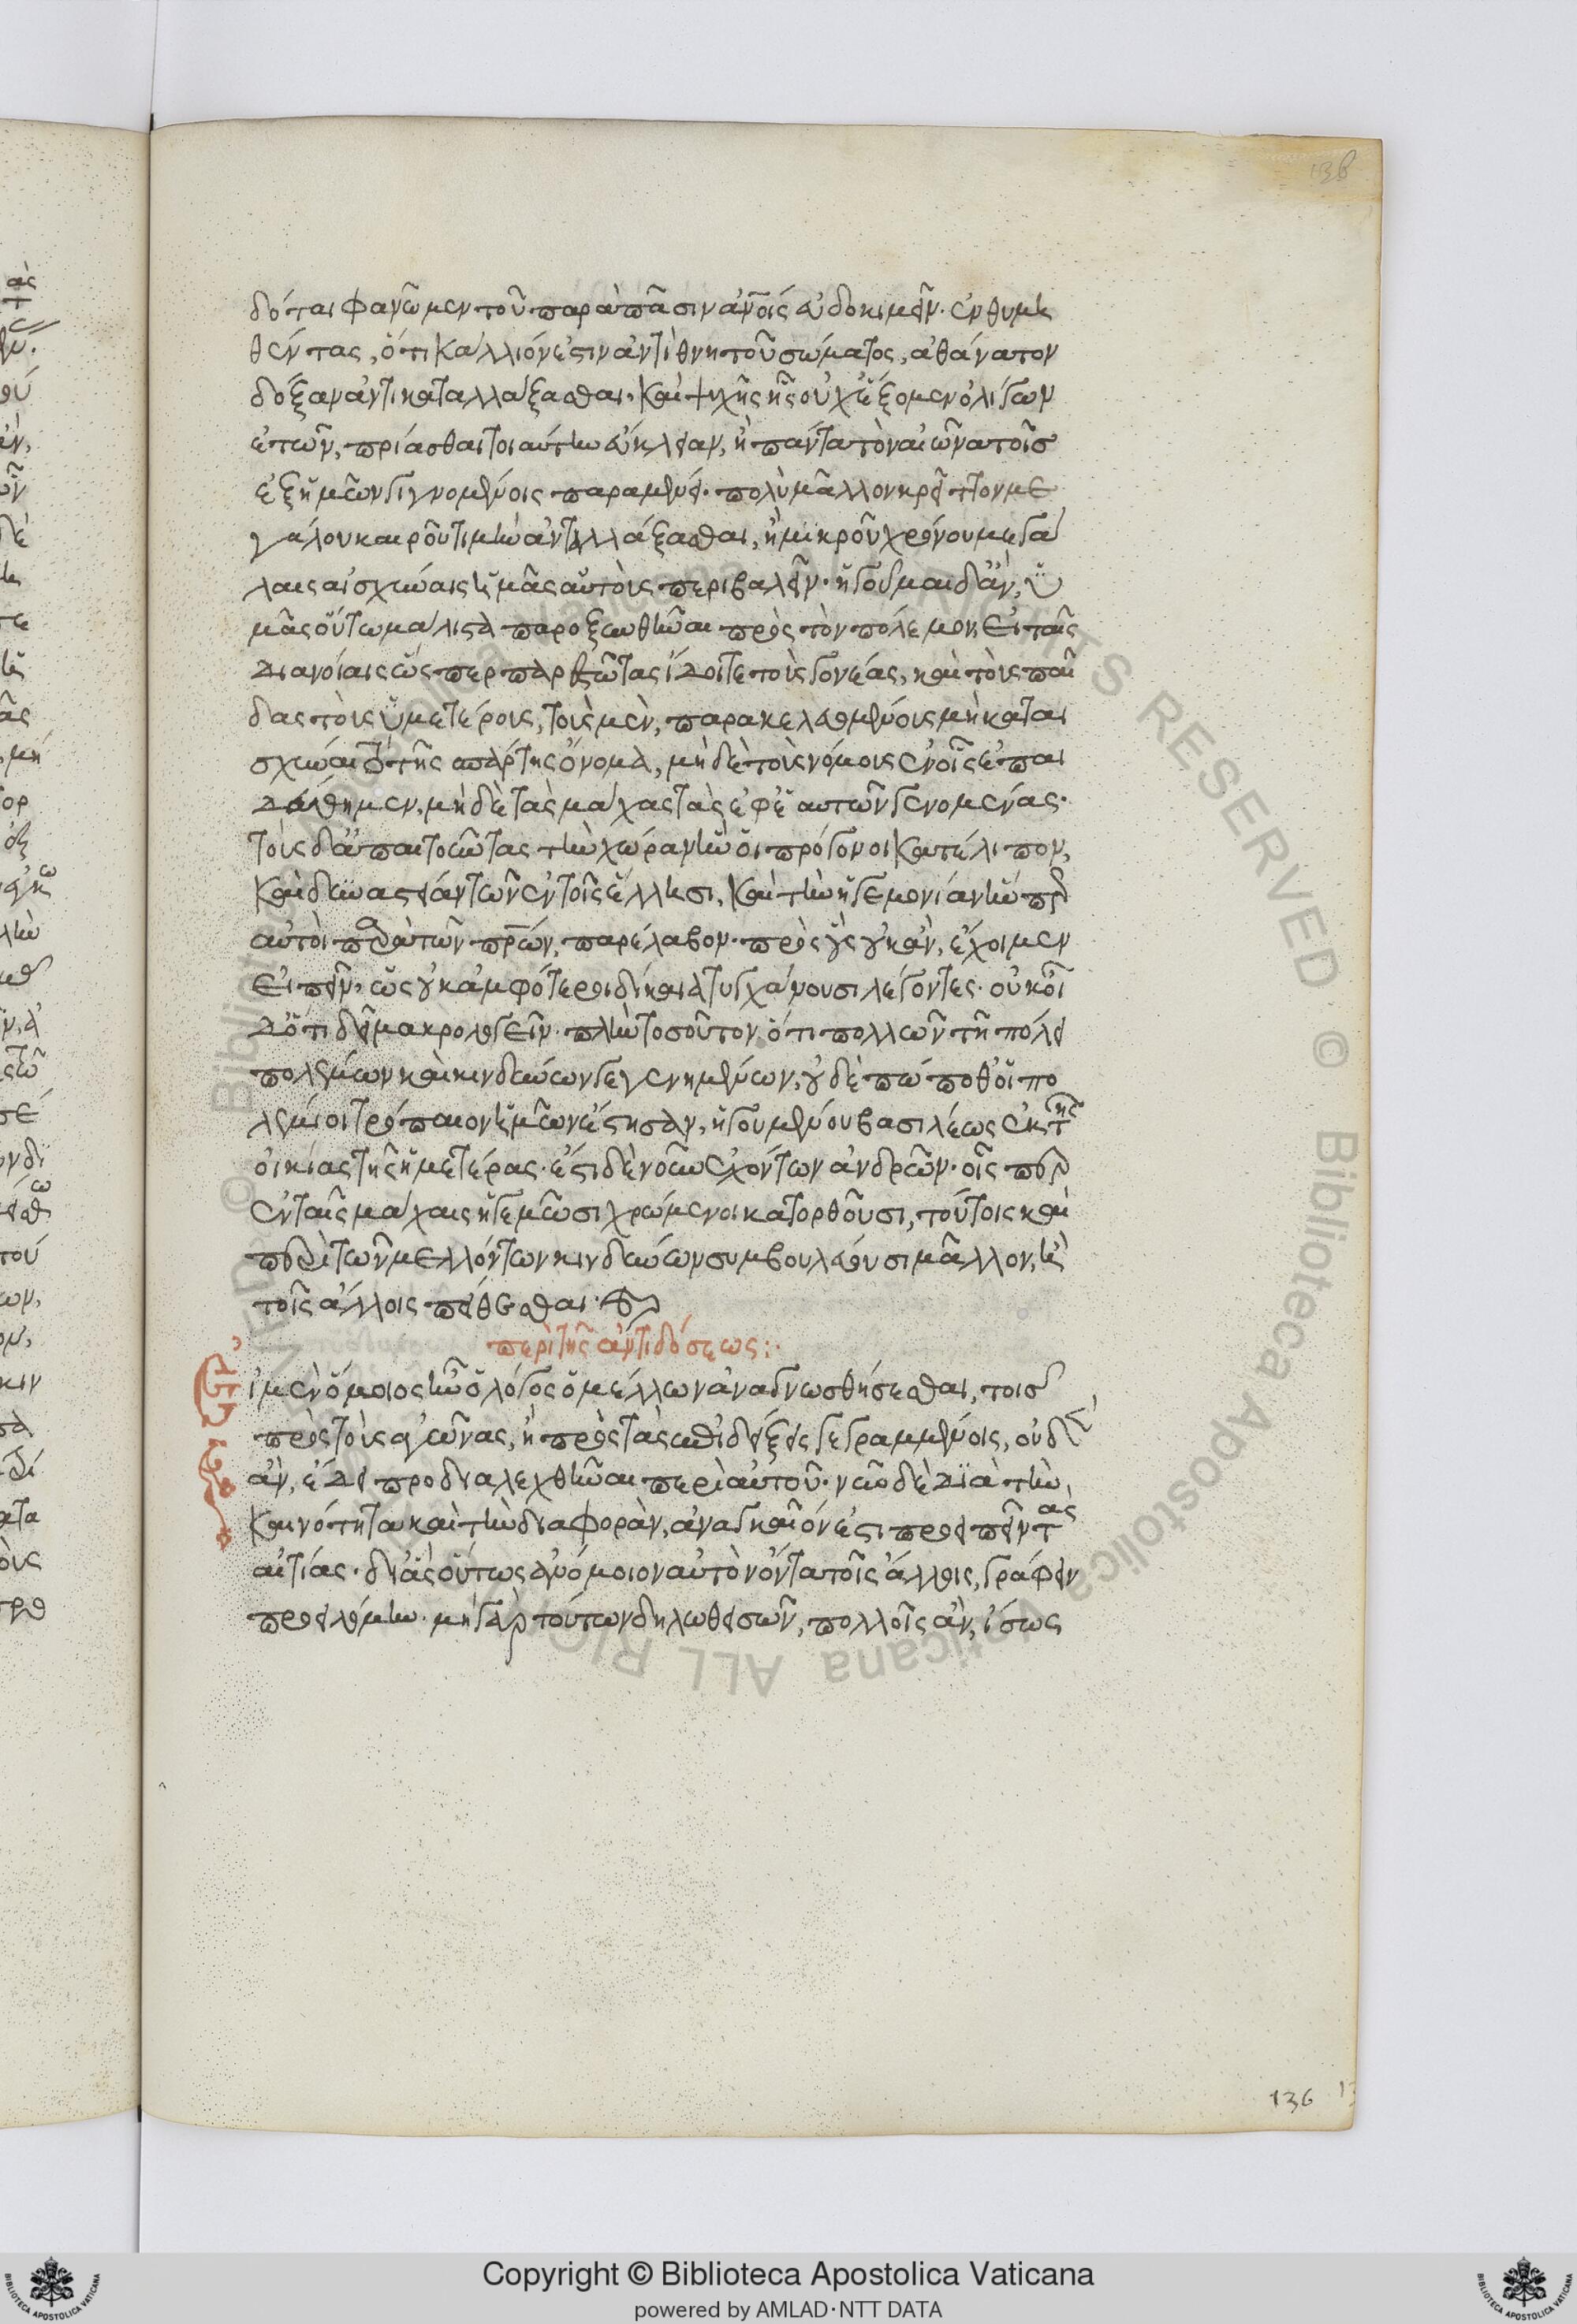 138
δόται φανῶμεν τοῦ παρὰ πᾶσιν ἀν̅οις εὐδοκιμεῖν· ἐνθυμη
θέντας, ὅτι κάλλιόν ἐστιν ἀντὶ θνητοῦ σώματος, ἀθάνατον
δόξαν ἀντικαταλλάξασθαι. καὶ ψυχῆς ἧς οὐχ ἕξομεν ὀλίγων
ἐτῶν, πρίασθαι τοιαύτην εὔκλειαν, ἣ πάντα τὸν αἰῶνα τοῖς
ἐξ ἡμῶν γιγνομένοις παραμένει· πολὺ μᾶλλον κρεῖττον με
γάλου καιροῦ τιμὴν ἀνταλλάξασθαι, ἢ μικροῦ χρόνου μεγά
λαις αἰσχύναις ἡμᾶς αὐτοὺς περιβαλεῖν· ἡγοῦμαι δ' ἂν, ὑ
μᾶς οὕτω μάλιστα παροξυνθῆναι πρὸς τὸν πόλεμον, εἰ ταῖς
διανοίαις ὥσπερ παρεστῶτας ἴδοιτε τοὺς γονέας, καὶ τοὺς παῖ
δας τοὺς ὑμετέρους, τοὺς μὲν, παρακελευομένους μὴ καται
σχῦναι τὸ τῆς σπάρτης ὄνομα, μηδὲ τοὺς νόμους ἐν οἷς ἐπαι
δεύθημεν, μηδὲ τὰς μάχας τὰς ἐφ' ἑαυτῶν γενομένας·
τοὺς δ' ἀπαιτοῦντας τὴν χώραν ἣν οἱ πρόγονοι κατέλιπον,
καὶ δυναστείαν τὴν ἐν τοῖς ἕλλησι, καὶ τὴν ἡγεμονίαν ἥνπερ
αὐτοὶ παρὰ τῶν πρ̅ων, παρέλαβον· πρὸς οὓς οὐκ ἂν, ἔχοιμεν
εἰπεῖν, ὡς οὐκ ἀμφότεροι δίκαια τυγχάνουσι λέγοντες· οὐκ οἶ
δ' ὅτι δεῖ μακρολογεῖν· πλὴν τοσοῦτον, ὅτι πολλῶν τῇ πόλει
πολέμων καὶ κινδύνων γεγενημένων, οὐδὲ πώποθ' οἱ πο
λέμιοι τρόπαιον ἡμῶν ἔστησαν, ἡγουμένου βασιλέως ἐκ τῆς
οἰκίας τῆς ἡμετέρας· ἔστι δὲ νοῦν ἐχόντων ἀνδρῶν· οἷς περ
ἐν ταῖς μάχαις ἡγεμῶσι χρώμενοι κατορθοῦσι, τούτοις καὶ
περὶ τῶν μελλόντων κινδύνων συμβουλεύουσι μᾶλλον, ἢ
τοῖς ἄλλοις πείθεσθαι·
περὶ τῆς ἀντιδόσεως:·
ἰ μὲν ὅμοιος ἦν ὁ λόγος ὁ μέλλων ἀναγνωσθήσεσθαι, τοῖς
πρὸς τοὺς ἀγῶνας, ἢ πρὸς τὰς ἐπιδείξεις γεγραμμένοις, οὐδὲν
ἂν, ἔδει προδιαλεχθῆναι περὶ αὐτοῦ· νῦν δὲ διὰ τὴν
καινότητα καὶ τὴν διαφορὰν, ἀναγκαῖόν ἐστι προειπεῖν τὰς
αἰτίας· δι' ἃς οὕτως ἀνόμοιον αὐτὸν ὄντα τοῖς ἄλλοις, γράφειν
προειλόμην· μὴ γὰρ τούτων δηλωθεισῶν, πολλοῖς ἂν, ἴσως
136
Copyright © Biblioteca Apostolica Vaticana
powered by AMLAD·NTT DATA